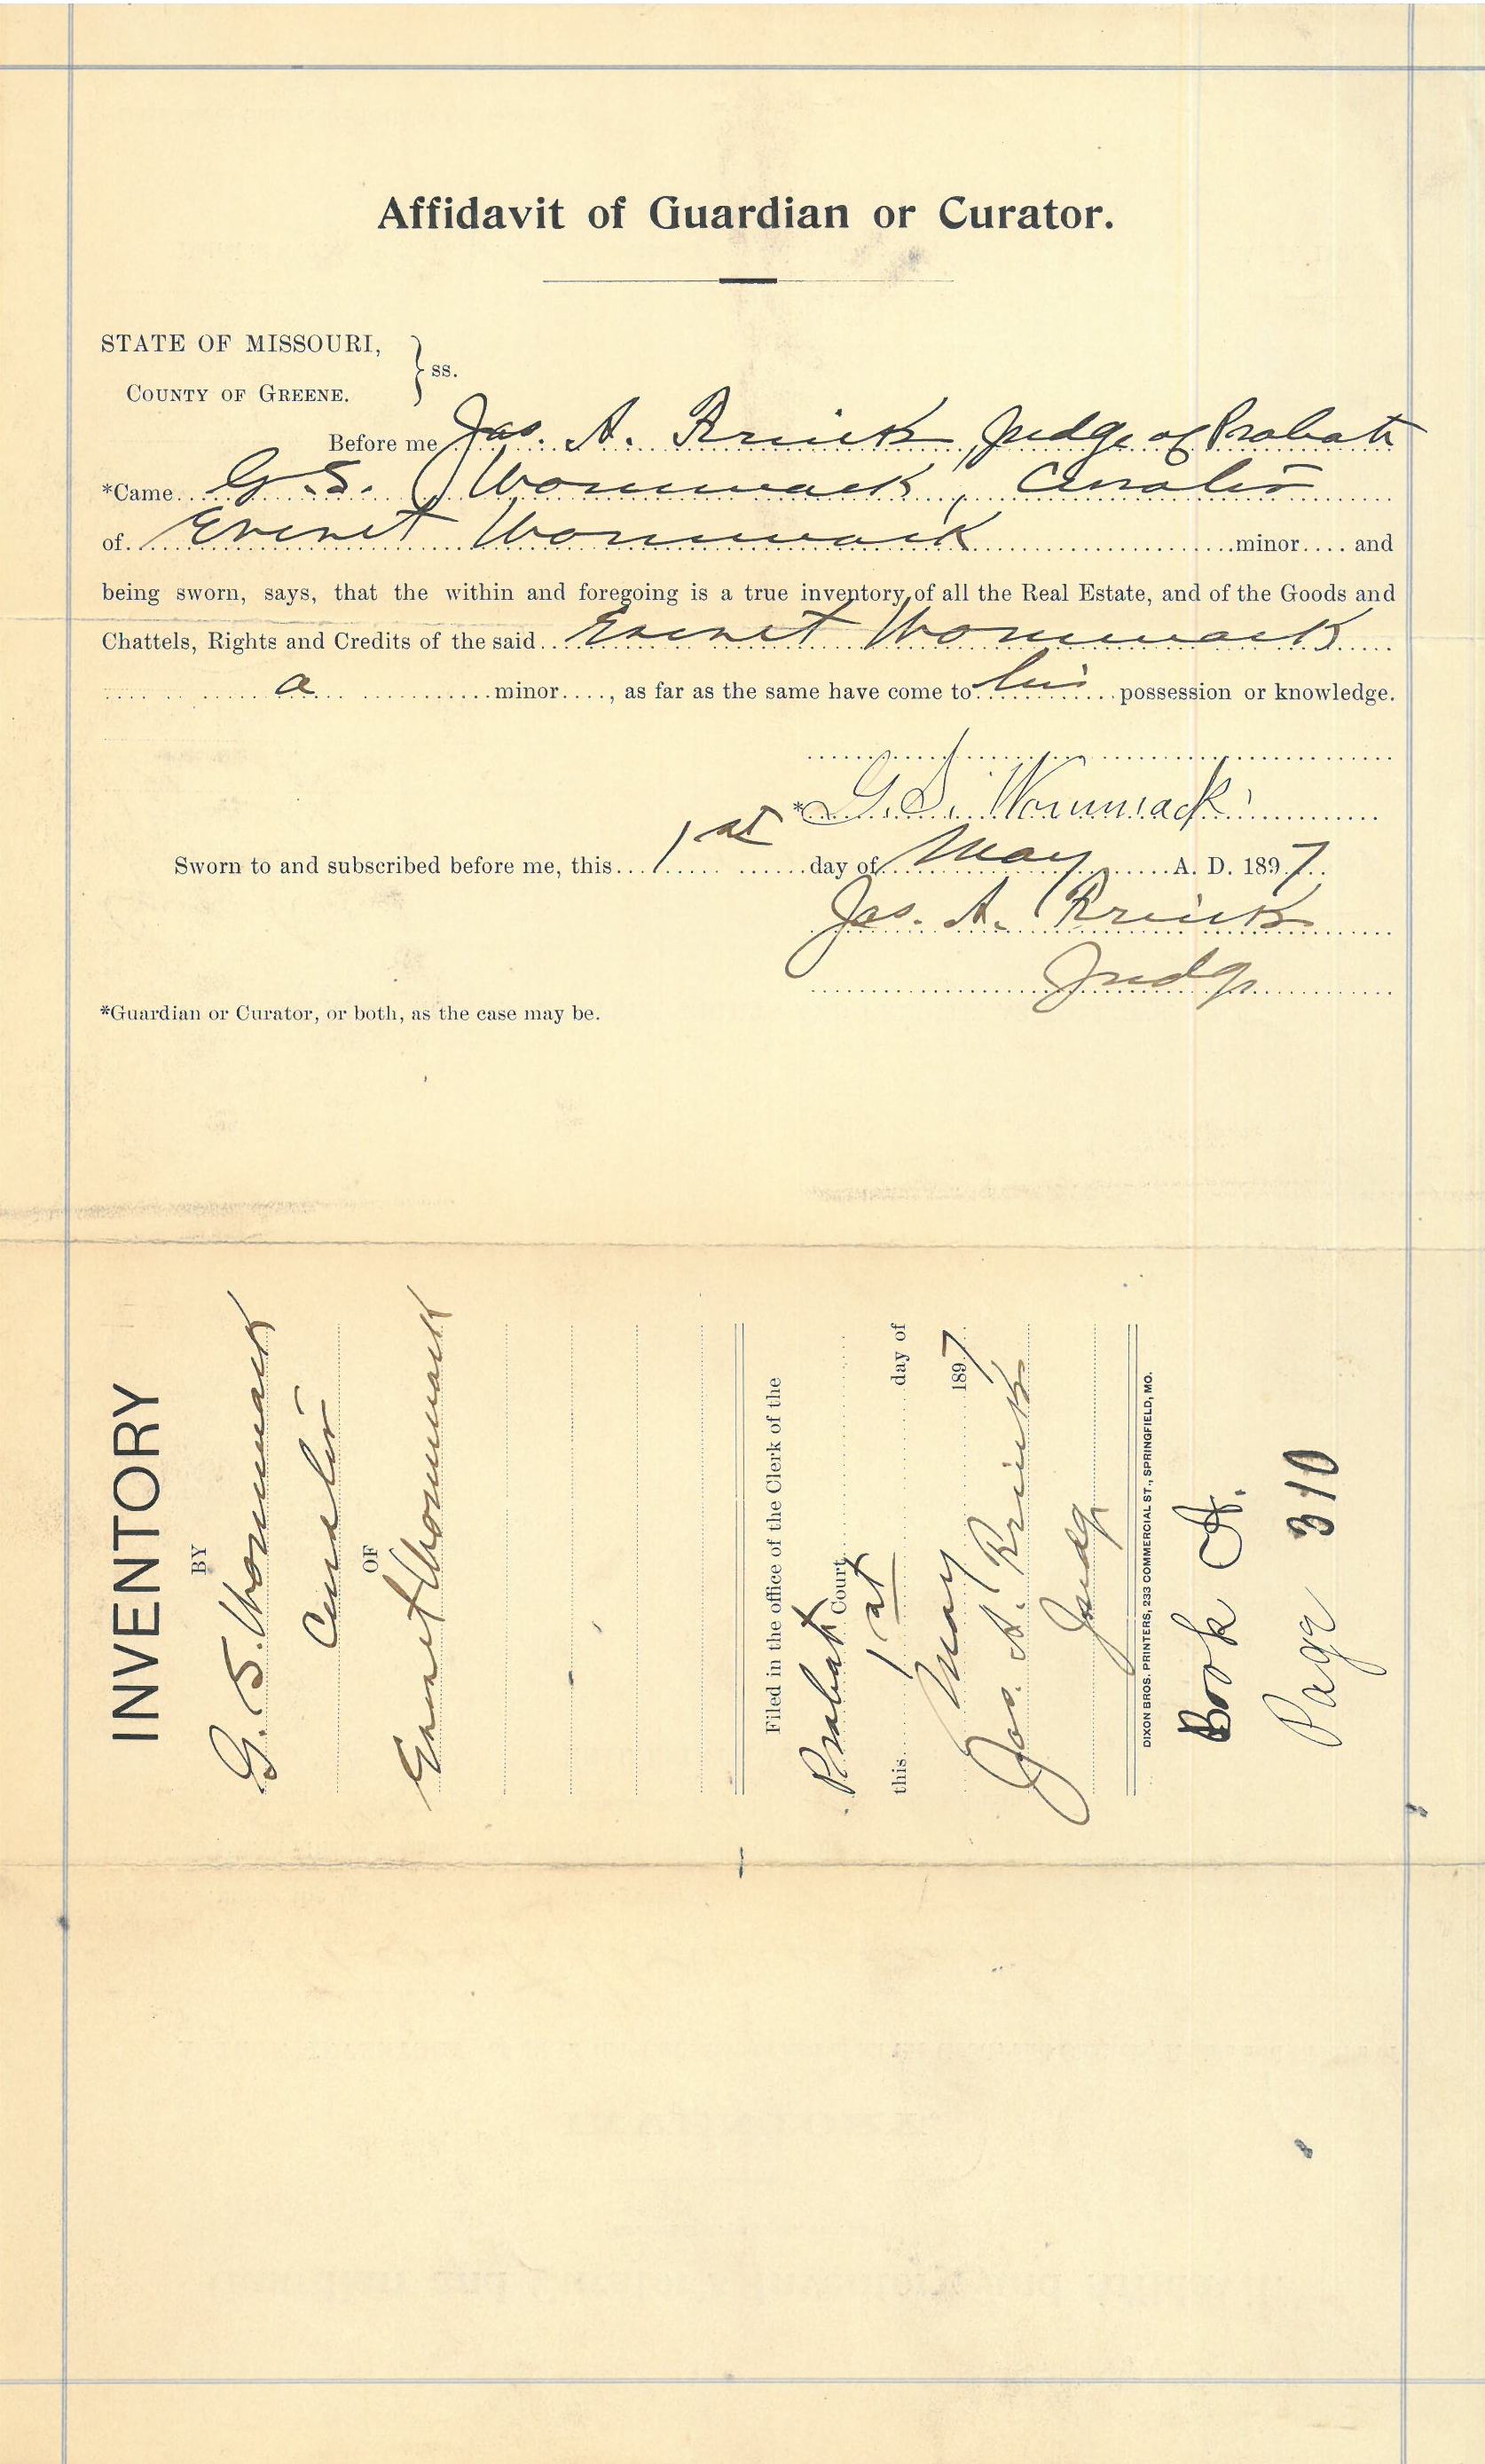 Affidavit of Guardian or Curator.
STATE OF MISSOURI,
COUNTY OF GREENE. } ss.
Before me Jas. A. Brink, Judge of Probate
*Came G. S. Wommack, Curator
of Everet Wommack minor and
being sworn, says, that the within and foregoing is a true inventory of all the Real Estate, and of the Goods and
Chattels, Rights and Credits of the said Everet Wommack
a minor, as far as the same have come to his possession or knowledge.
* G. S. Wommack
Sworn to and subscribed before me, this 1st day of May A. D. 1897
Jas. A.
Judge
*Guardian or Curator, or both, as the case may be.
INVENTORY
BY
G. S. Wommack
Curator
OF
Everet Wommack
Filed in the office of the Clerk of the
Probate Court
this 1st day of
May 1897
Jas. A.
Judge
DIXON BROS. PRINTERS, 233 COMMERCIAL ST., SPRINGFIELD, MO.
Book A.
Page 310